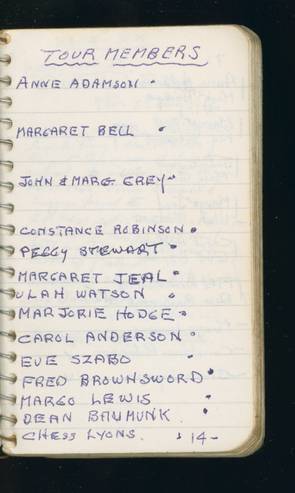 TOUR MEMBERS
ANNE ADAMSON •
MARGARET BELL •
JOHN & MARG. GREY •
CONSTANCE ROBINSON •
PEGGY STEWART •
MARGARET TEAL •
ULAH WATSON •
MARJORIE HODGE •
CAROL ANDERSON •
EVE SZABO •
FRED BROWNSWORD •
MARGO LEWIS •
DEAN •
CHESS LYONS. 14 -